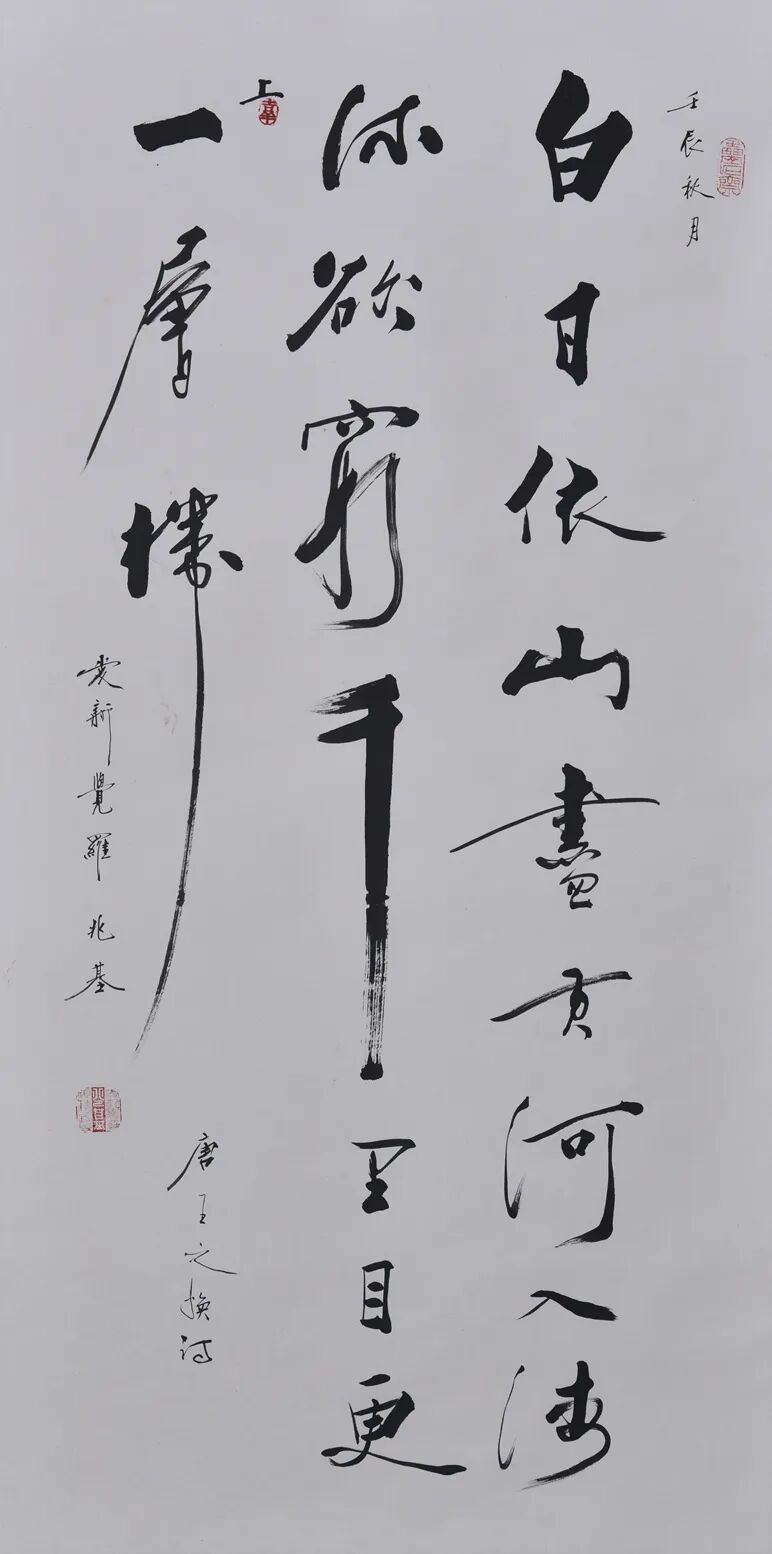 壬辰秋月
白日依山盡黄河入海
流欲窮千里目更
上
一層樓
唐王之換詩
愛新覺羅兆基